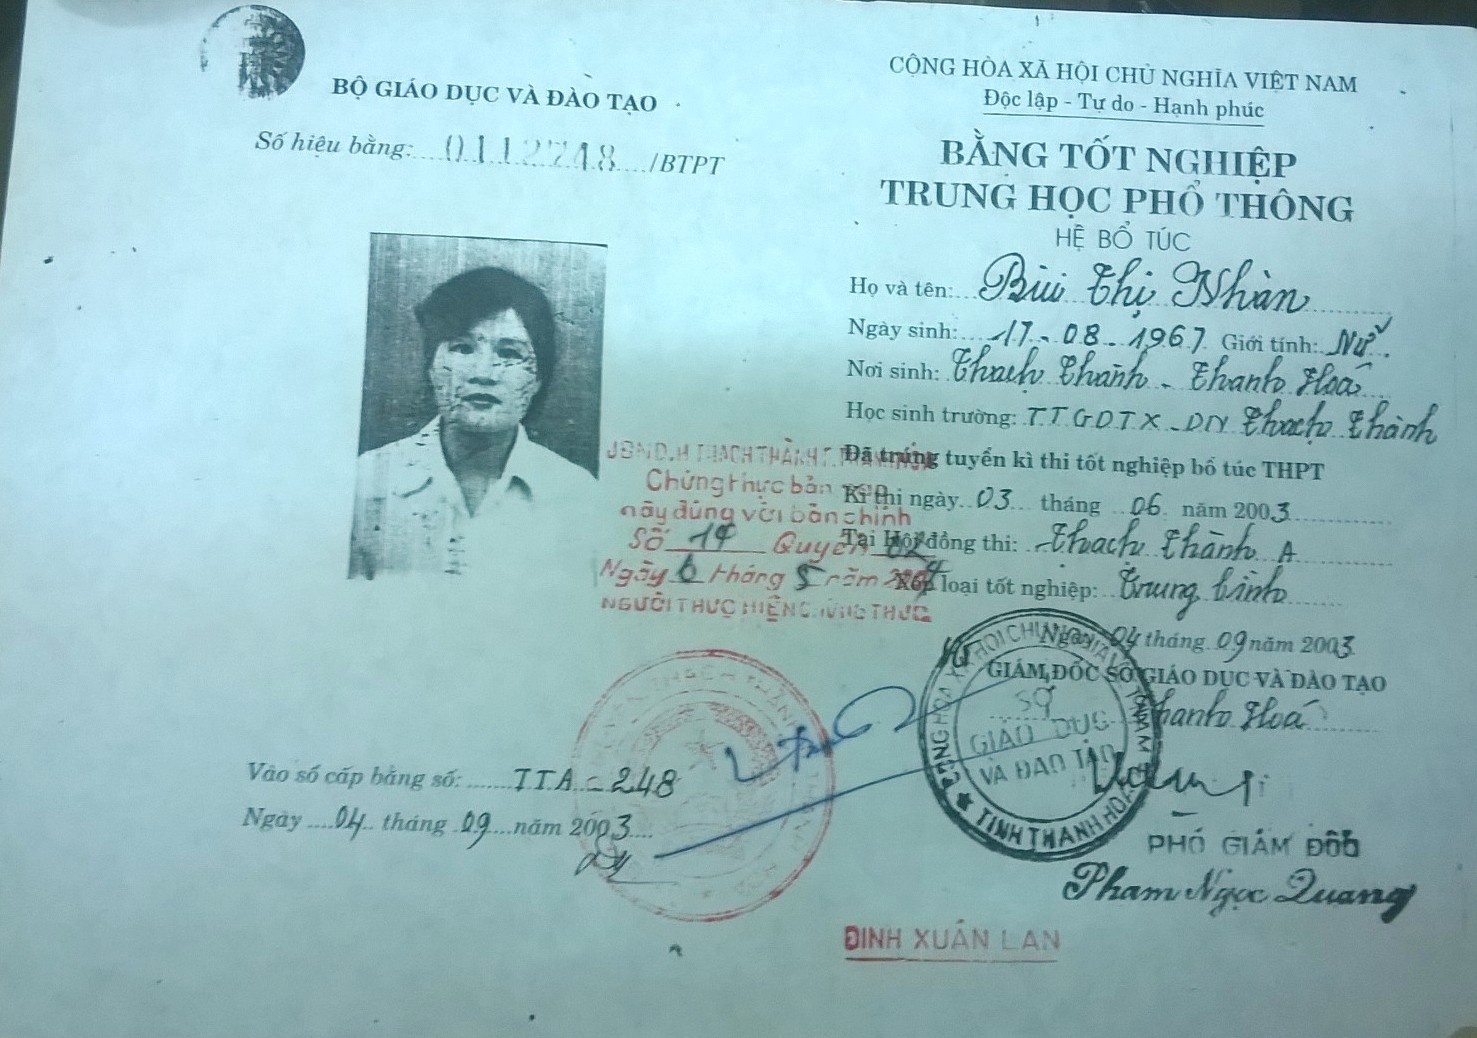 BỘ GIÁO DỤC VÀ ĐÀO TẠO
Số hiệu bằng: 0112748/BTPT
CỘNG HÒA XÃ HỘI CHỦ NGHĨA VIỆT NAM
Độc lập - Tự do - Hạnh phúc
BẰNG TỐT NGHIỆP
TRUNG HỌC PHỔ THÔNG
HỆ BỔ TÚC
Họ và tên: Bùi Thị Nhàn
Ngày sinh: 17-08-1967 Giới tính: Nữ
Nơi sinh: Thạch Thành - Thanh Hoá
Học sinh trường: TTGDTX-DN Thạch Thành
Đã trúng tuyển kì thi tốt nghiệp bổ túc THPT
Kì thi ngày 03 tháng 06 năm 2003
Tại Hội đồng thi: Thạch Thành A
Xếp loại tốt nghiệp: Trung bình
Ngày 04 tháng 09 năm 2003
GIÁM ĐỐC SỞ GIÁO DỤC VÀ ĐÀO TẠO
Thanh Hoá
PHÓ GIÁM ĐỐC
Phạm Ngọc Quang
UBND.H THẠCH THÀNH
Chứng thực bản
này đúng với bản chính
Số 14 Quyển
Ngày 6 tháng 5 năm
NGƯỜI THỰC HIỆN CHỨNG THỰC
SỞ
GIÁO DỤC
VÀ ĐÀO TẠO
TỈNH THANH HOÁ
Vào sổ cấp bằng số: TTA - 248
Ngày 04 tháng 09 năm 2003
ĐINH XUÂN LAN